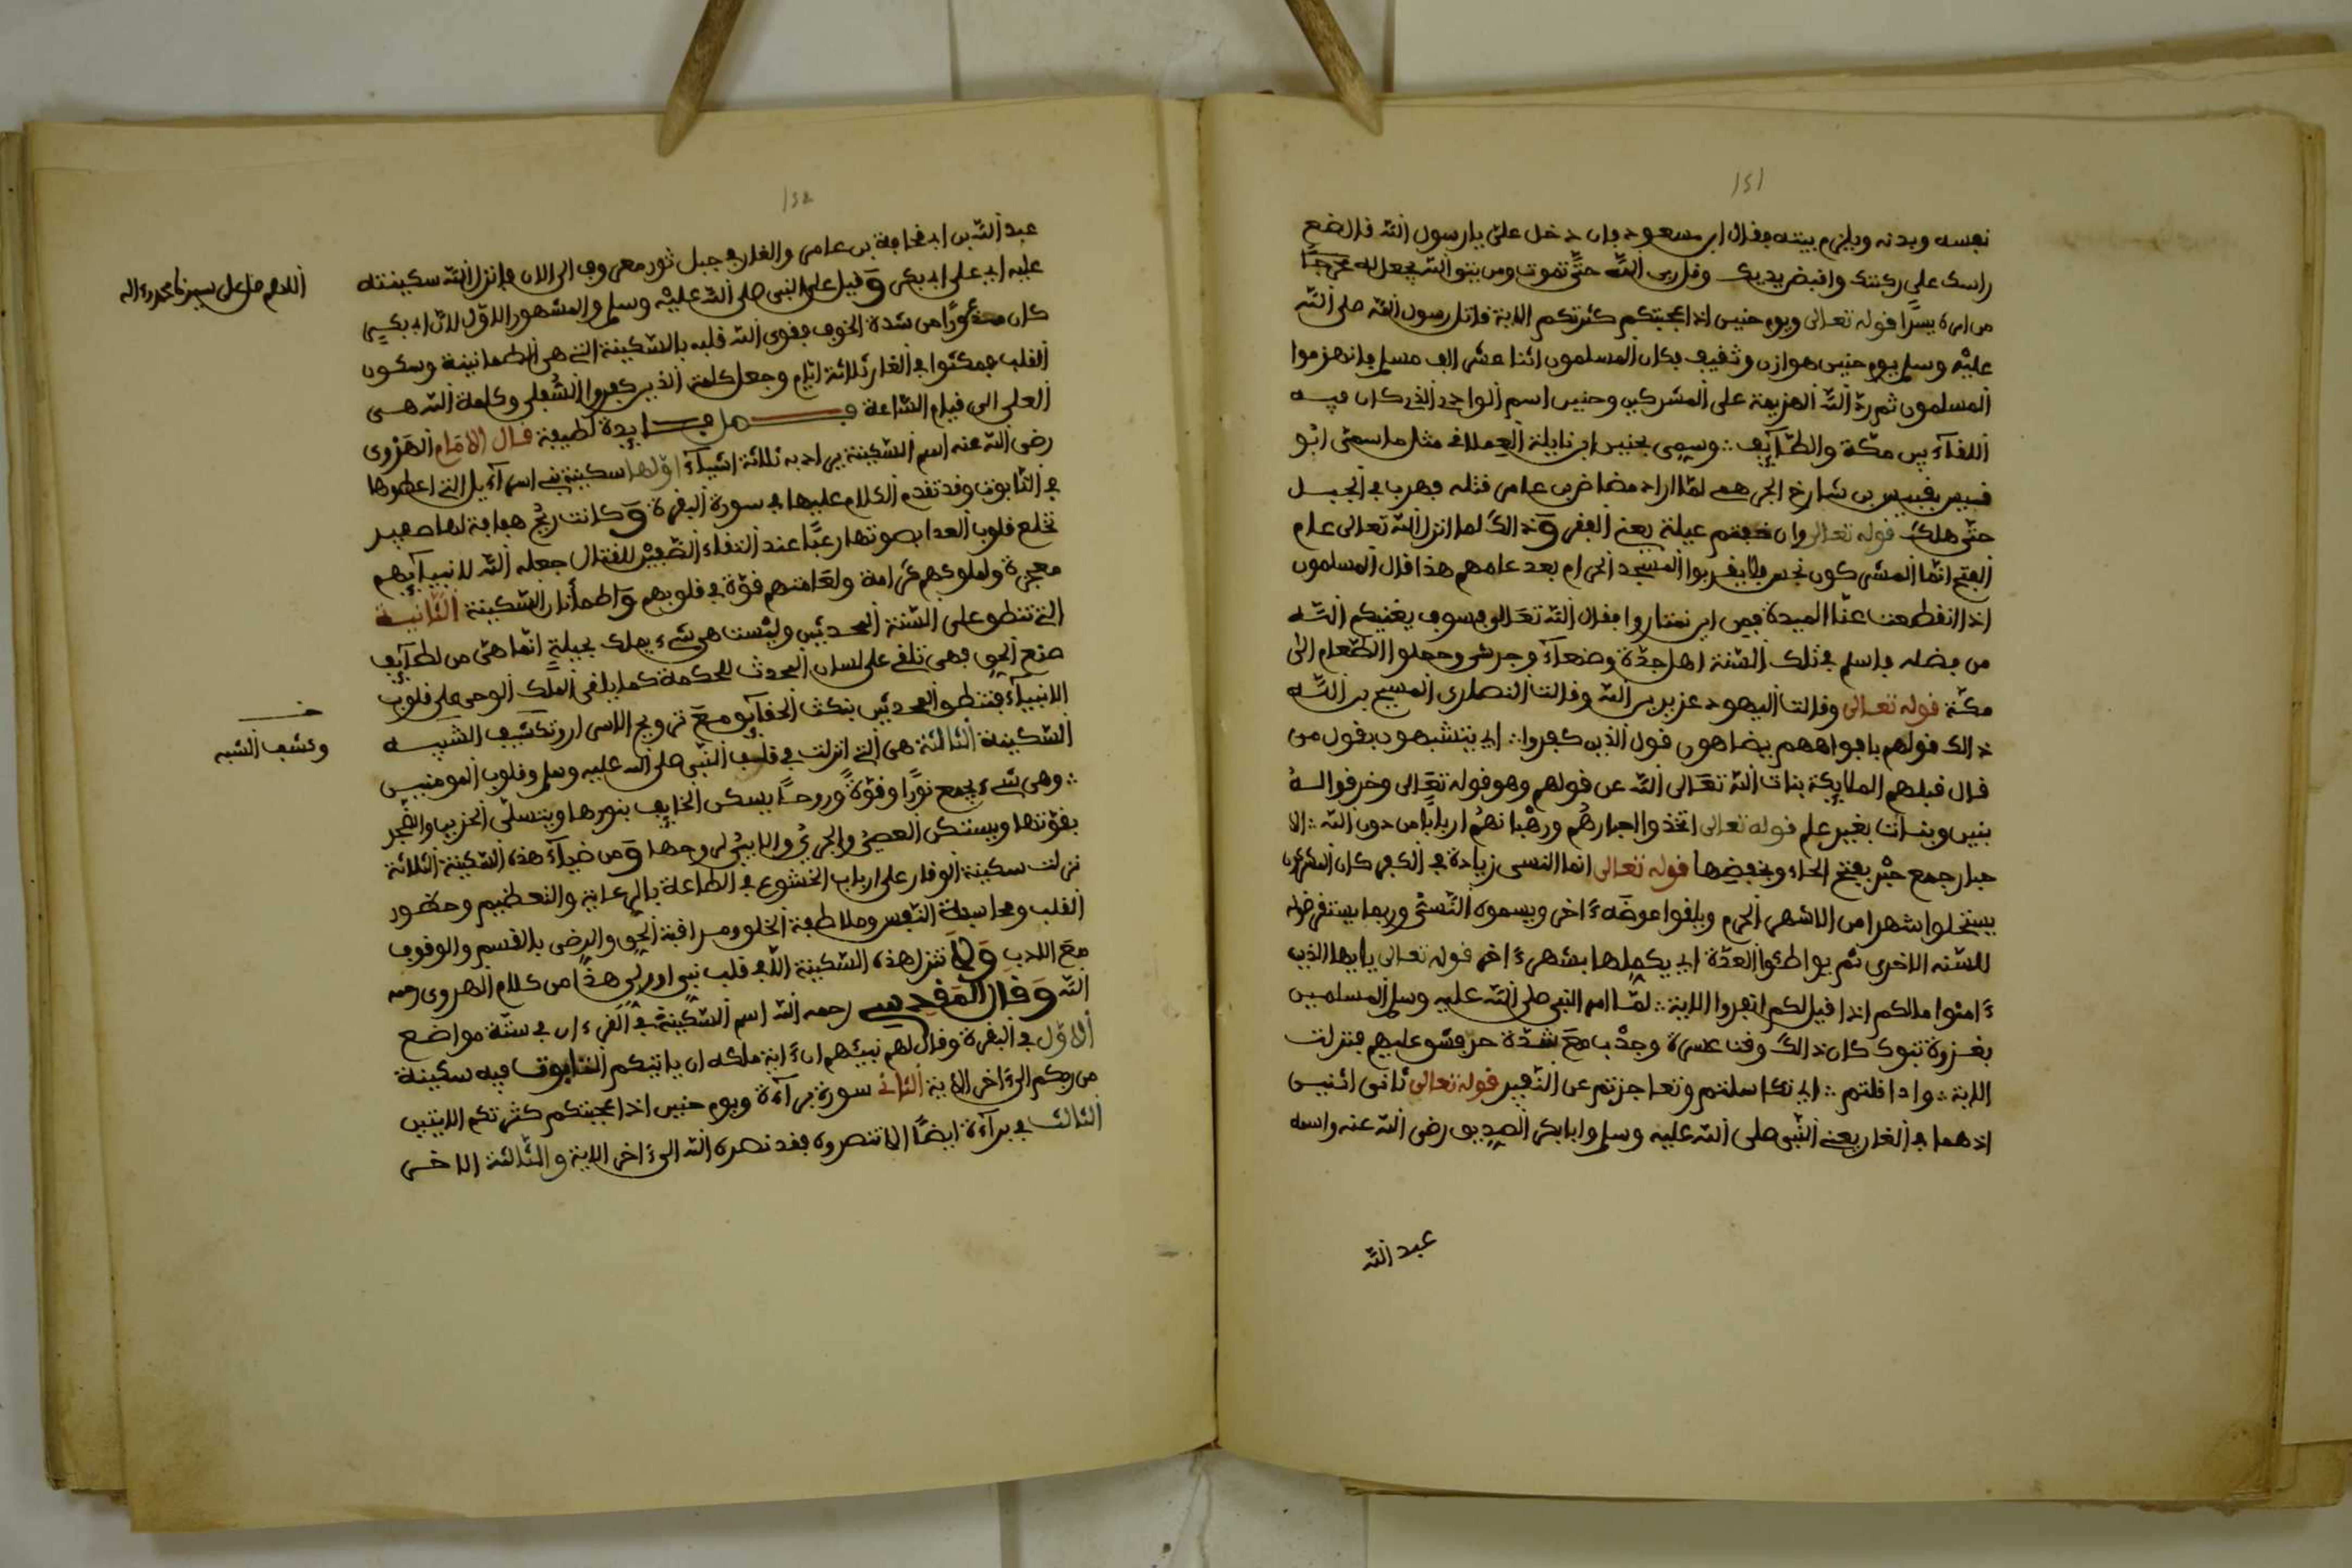 ١٢١
نفسه ويدنه ويلزم بيته فقال ابن مسعود فان دخل علي يا رسول الله قال ضع
راسك على ركبتك واقبض يديك وقل ربى الله حتى تموت ومن يتق الله يجعل له مخرجا
من امره يسرا قوله تعالى ويوم حنين اذ اعجبتكم كثرتكم الاية قاتل رسول الله صلى الله
عليه وسلم يوم حنين هوازن وثقيف فكان المسلمون اثنا عشر الف مسلم فانهزموا
المسلمون ثم رد الله الهزيمة على المشركين وحنين اسم الوادى الذى كان فيه
اللقاء بين مكة والطايف وسمى بحنين ابن نابلة العملاقى مثل ما سمى ابو
قبيس بن شارخ الجرهمى لما اراد مضاض بن عامر قتله فهرب فى الجبل
حتى هلك قوله تعالى وان خفتم عيلة يعنى الفقر وذالك لما انزل الله تعالى عام
الفتح انما المشركون نجس فلا يقربوا المسجد الحرام بعد عامهم هذا قال المسلمون
اذا انقطعت عنا الميرة فمن اين نمتاروا فقال الله تعالى فسوف يغنيكم الله
من فضله فاسلم فى تلك السنة اهل جدة وصنعاء وجرش وحملوا الطعام الى
مكة قوله تعالى وقالت اليهود عزير بن الله وقالت النصارى المسيح بن الله
ذالك قولهم بافواههم يضاهون قول الذين كفروا اى يتشبهون بقول من
قال قبلهم الملايكة بنات الله تعالى الله عن قولهم وهو قوله تعالى وخرقوا له
بنين وبنات بغير علم قوله تعالى اتخذوا احبارهم ورهبانهم اربابا من دون الله الا
حبار جمع حبر بفتح الحاء وبخفضها قوله تعالى انما النسى زيادة فى الكفر كان المشركون
يستحلوا شهرا من الاشهر الحرم ويلقوا عوضه ءاخر ويسموه النسئ وربما يستقرضوه
للسنه الاخرى ثم يواطئوا العدة اى يكملها بشهر ءاخر قوله تعالى يايها الذين
ءامنوا مالكم اذا قيل لكم انفروا الاية لما امر النبى صلى الله عليه وسلم المسلمين
بغزوة تبوك كان ذالك وقت عسرة وجدب مع شدة حر فشق عليهم فنزلت
الاية واداقلتم اى تكاسلتم وتعاجزتم عن النفير قوله تعالى ثانى اثنين
اذ هما فى الغار يعنى النبى صلى الله عليه وسلم وابابكر الصديق رضى الله عنه واسمه
عبد الله
عبد الله بن ابى قحافة بن عامر والغار فى جبل ثور معروف الى الان فانزل الله سكينته
عليه اى على ابى بكر وقيل على النبى صلى الله عليه وسلم والمشهور الاول لان ابى بكر
كان مذعورا من شدة الخوف فقوى الله قلبه بالسكينة التى هى الطمانينة وسكون
القلب فمكثوا فى الغار ثلاثة ايام وجعل كلمة الذين كفروا السفلى وكلمة الله هى
العلى الى قيام الساعة فصل فايدة لطيفة قال الامام الهروى
رضى الله عنه اسم السكينة يراد به ثلاثة اشياء اولها سكينة بنى اسراءيل التى اعطوها
فى التابوت وقد تقدم الكلام عليها فى سورة البقرة وكانت ريح هفافة لها صفير
تخلع قلوب العدا بصوتها رعبا عند التقاء الصفين للقتال جعله الله لانبيايهم
معجزة ولملوكهم كرامة ولعامتهم قوة فى قلوبهم واطمأنان السكينة الثانية
التى تنطق على السنة المحدثين وليست هى شىء يملك بحيلة انما هى من لطايف
صنع الحق فهى تلقى على لسان المحدث الحكمة كما يلقى الملك الوحى على قلوب
الانبياء فتنطق المحدثين بنكث الحقايق مع ترويح الاسرار وتكشيف الشبه
السكينة الثالثة هى التى انزلت فى قلب النبى صلى الله عليه وسلم وقلوب المومنين
وهى شىء يجمع نورا وقوة وروحا يسكن الخايف بنورها ويتسلى الحزين والضجر
بقوتها ويستكن العصى والجرى والابى لروحها ومن ضياء هذه السكينة الثلاثة
نزلت سكينة الوقار على ارباب الخشوع فى الطاعة بالرعاية والتعظيم وحضور
القلب ومحاسبة النفس وملاطفة الخلق ومراقبة الحق والرضى بالقسم والوقوف
مع الادب ولا تنزل هذه السكينة الا فى قلب نبى او ولى هذا من كلام الهروى رحمه
الله وقال المقدسى رحمه الله اسم السكينة فى القرءان فى ستة مواضع
الاول فى البقرة وقال لهم نبيهم ان ءاية ملكه ان ياتيكم التابوت فيه سكينة
من ربكم الى ءاخر الاية الثانى سورة براءة ويوم حنين اذ اعجبتكم كثرتكم الايتين
الثالث فى براءة ايضا الا تنصروه فقد نصره الله الى ءاخر الاية والثالثة الاخر
اللهم صل على سيدنا محمد وءاله
خـ
وكشف الشبه